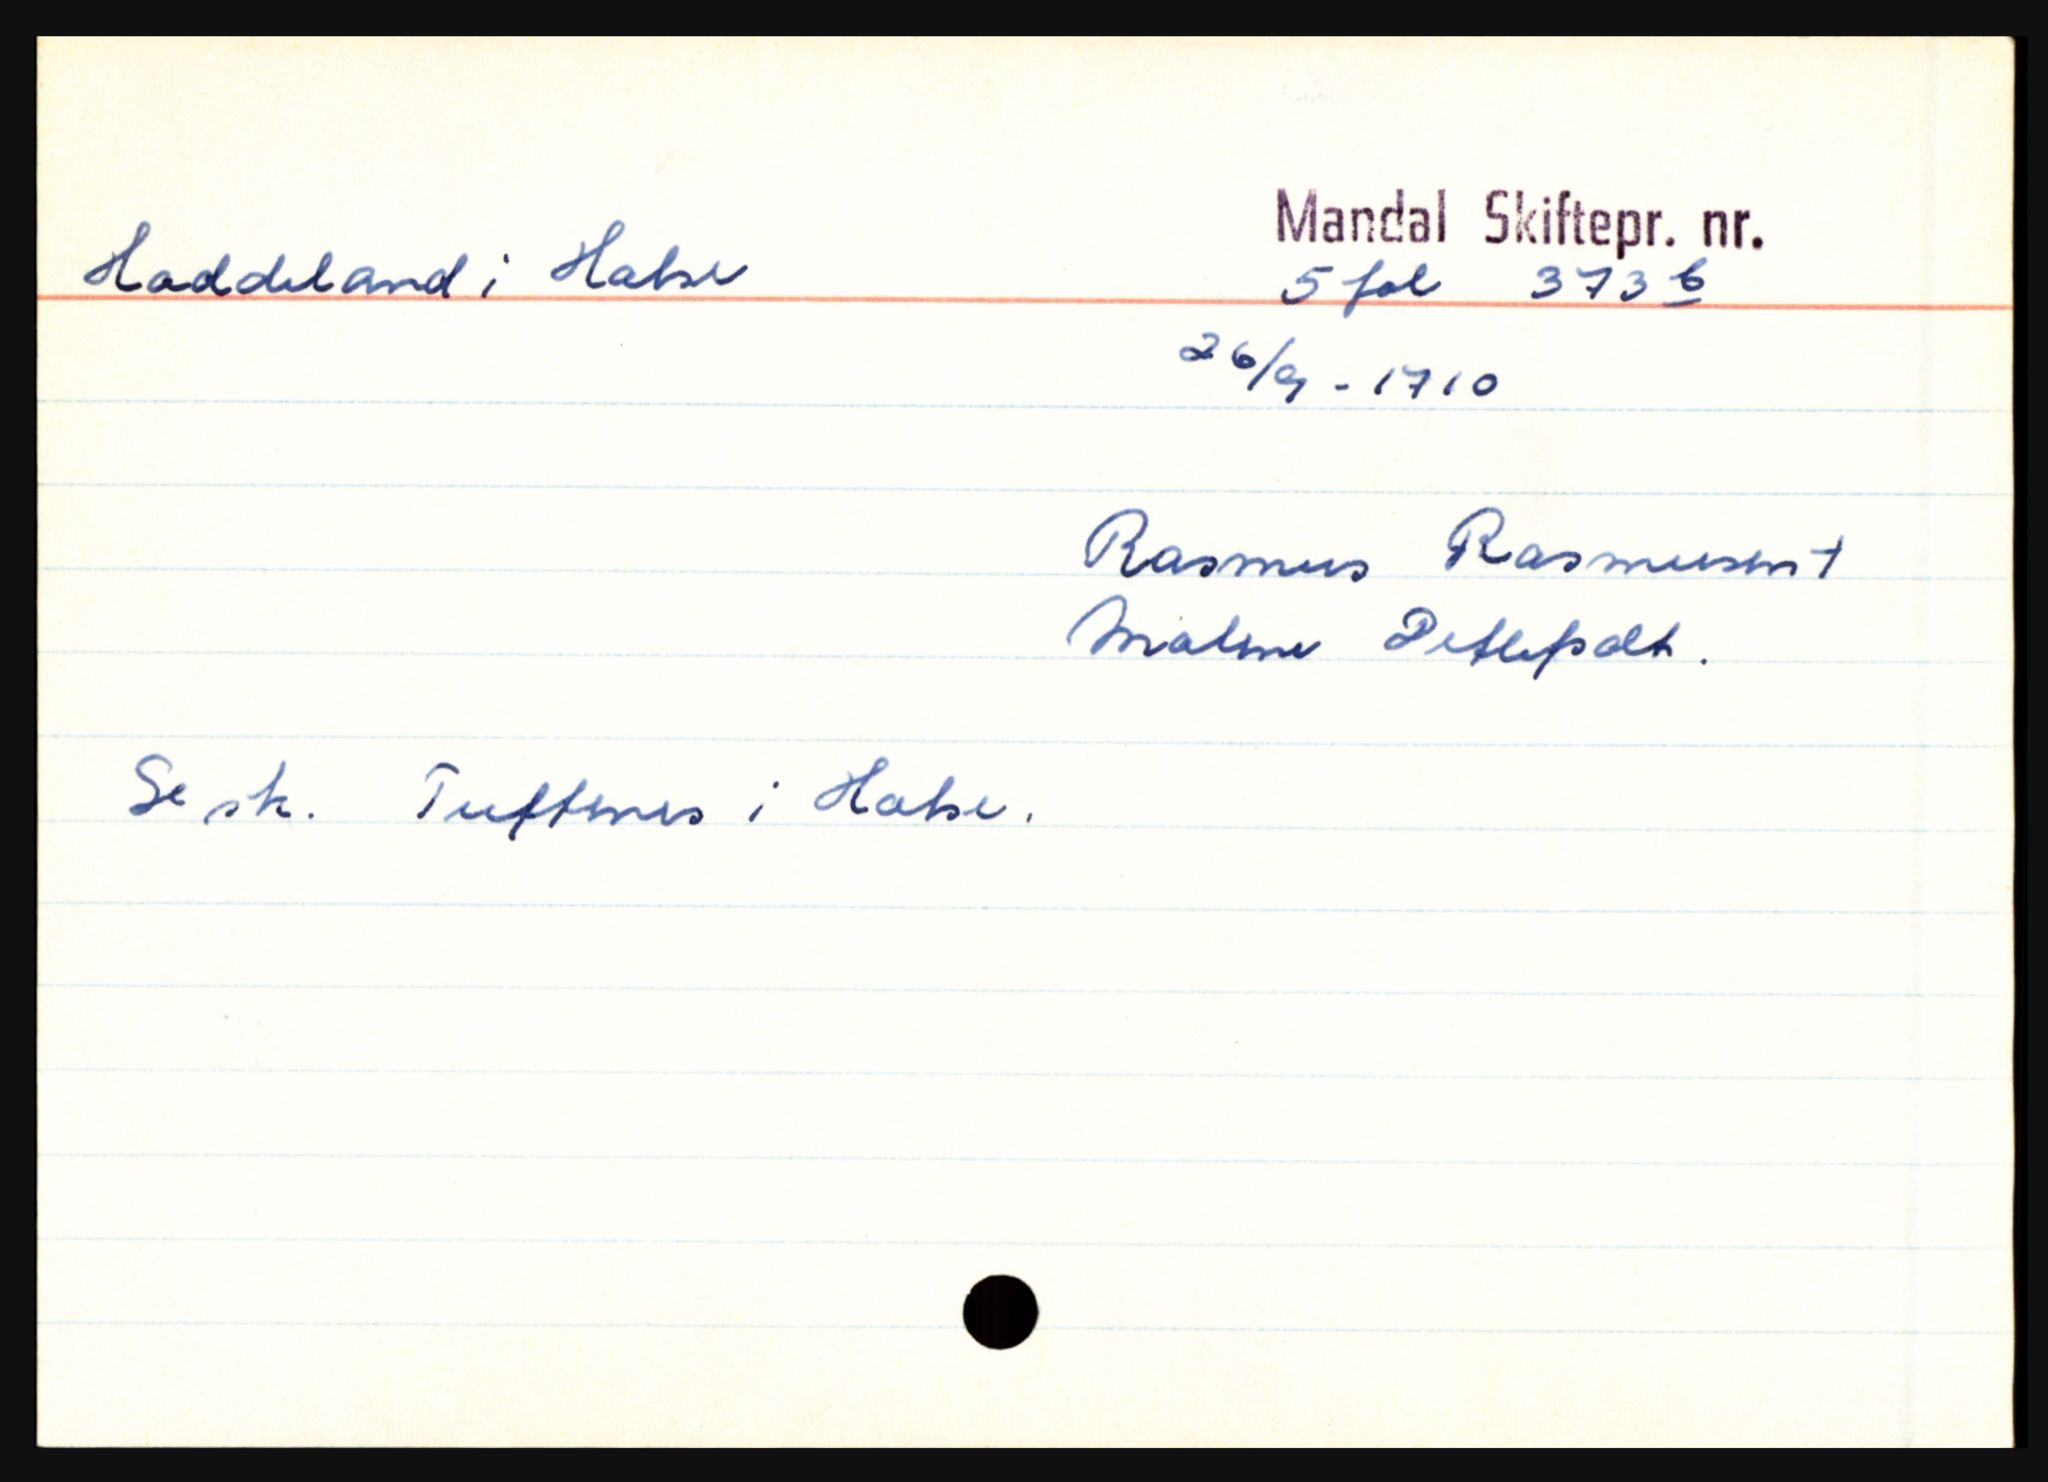 Mandal Skiftepr. nr.
Haddeland i Halse 5 fol 373 b
26/9 - 1710
Rasmus Rasmusen †
Malene Detlefsdtr.
Se sk. Tuftenes i Halse.